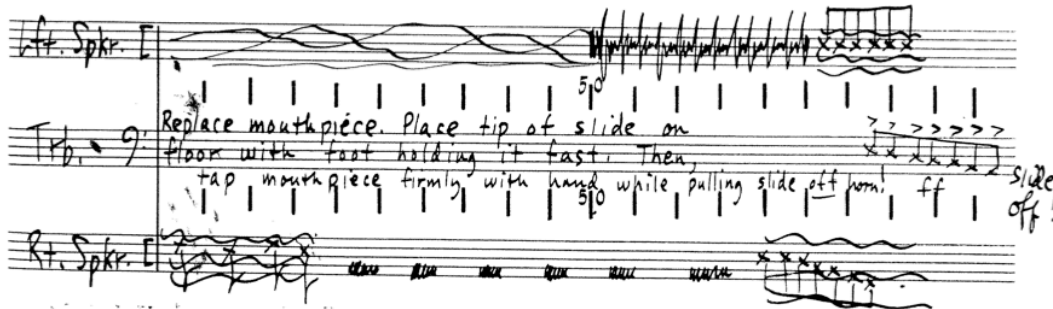 Lft. Spkr.
50
Trb.
Replace mouthpiece. Place tip of slide on
floor with foot holding it fast. Then,
tap mouthpiece firmly with hand while pulling slide off horn! ff
slide
off!
50
Rt. Spkr.